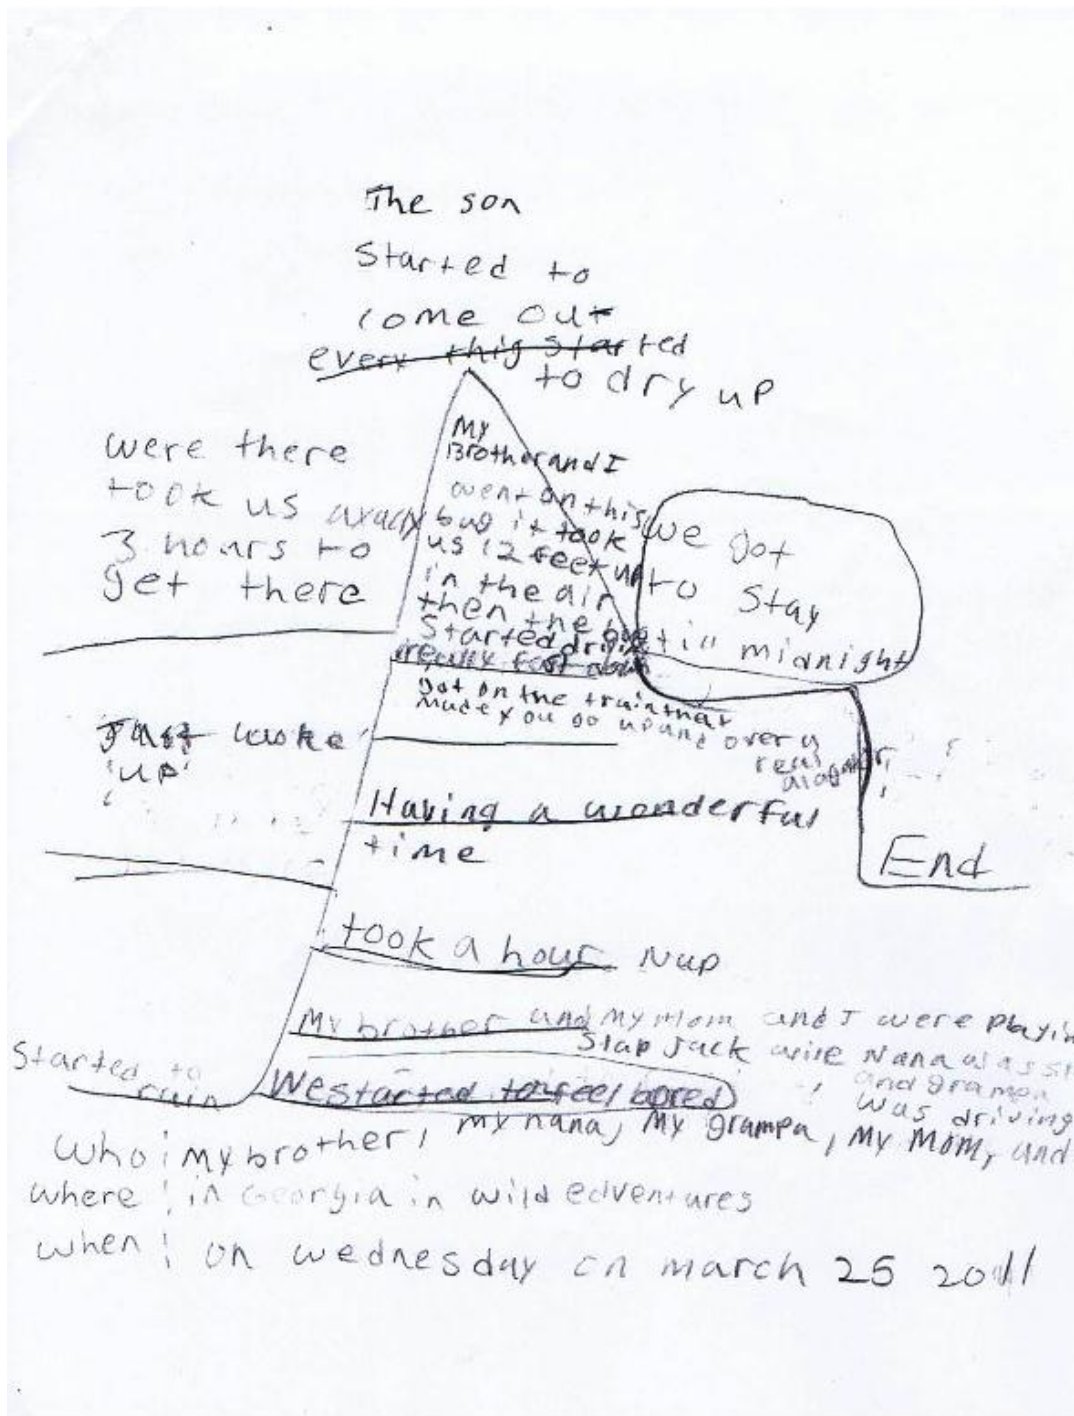 The son
Started to
come out
every thig started
to dry up
were there
took us
3 hours to
get there
My
Brother and I
went on this
bug it took
us 12 feet up
in the air
then the
Started
really fast down
we got
to stay
till midnight
got on the train that
made you go up and over a
real
Just woke
up
Having a wonderful
time
End
took a hour Nap
My brother and my mom and I were playin
Slap Jack Nana
and grampa
was driving
Started to
rain
We started to feel bored
who: my brother, my nana, My grampa, My Mom, and
where: in Georgia in wild edventures
when: on wednesday on march 25 2011